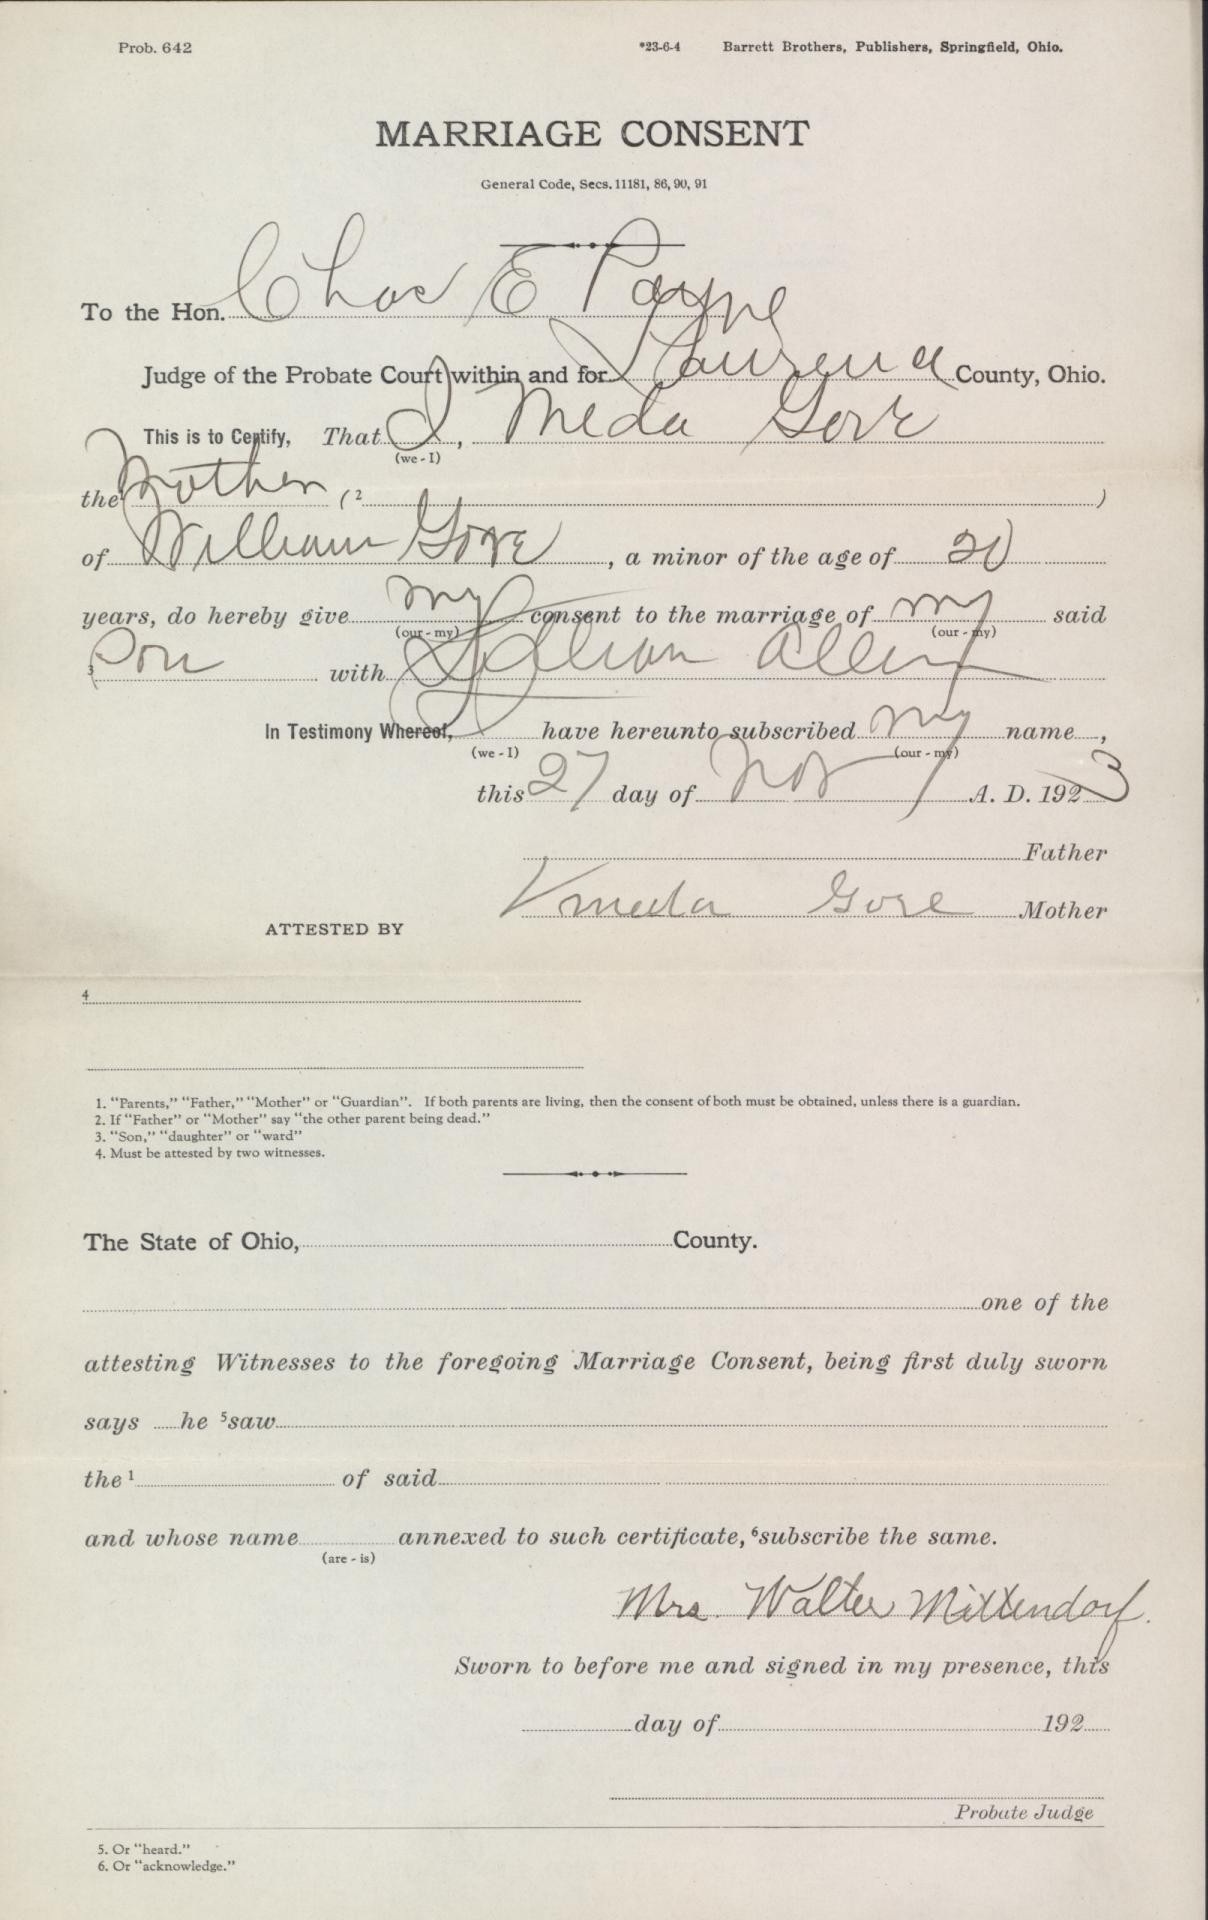 Prob. 642 *23-6-4 Barrett Brothers, Publishers, Springfield, Ohio.
MARRIAGE CONSENT
General Code, Secs. 11181, 86, 90, 91
To the Hon. Chas E Payne
Judge of the Probate Court within and for Lawrence County, Ohio.
This is to Certify, That I, Meda Gore
(we - I)
the Mother, (2 )
of William Gore, a minor of the age of 20
years, do hereby give my consent to the marriage of my said
(our - my) (our - my)
3 Son with Lillian Allen
In Testimony Whereof, I have hereunto subscribed my name ,
(we - I) (our - my)
this 27 day of Nov A. D. 1923
Father
Meda Gore Mother
ATTESTED BY
4
1. “Parents,” “Father,” “Mother” or “Guardian”. If both parents are living, then the consent of both must be obtained, unless there is a guardian.
2. If “Father” or “Mother” say “the other parent being dead.”
3. “Son,” “daughter” or “ward”
4. Must be attested by two witnesses.
The State of Ohio, County.
one of the
attesting Witnesses to the foregoing Marriage Consent, being first duly sworn
says he 5saw
the 1 of said
and whose name annexed to such certificate, 6subscribe the same.
(are - is)
Mrs. Walter Mittendorf.
Sworn to before me and signed in my presence, this
day of 192
Probate Judge
5. Or “heard.”
6. Or “acknowledge.”